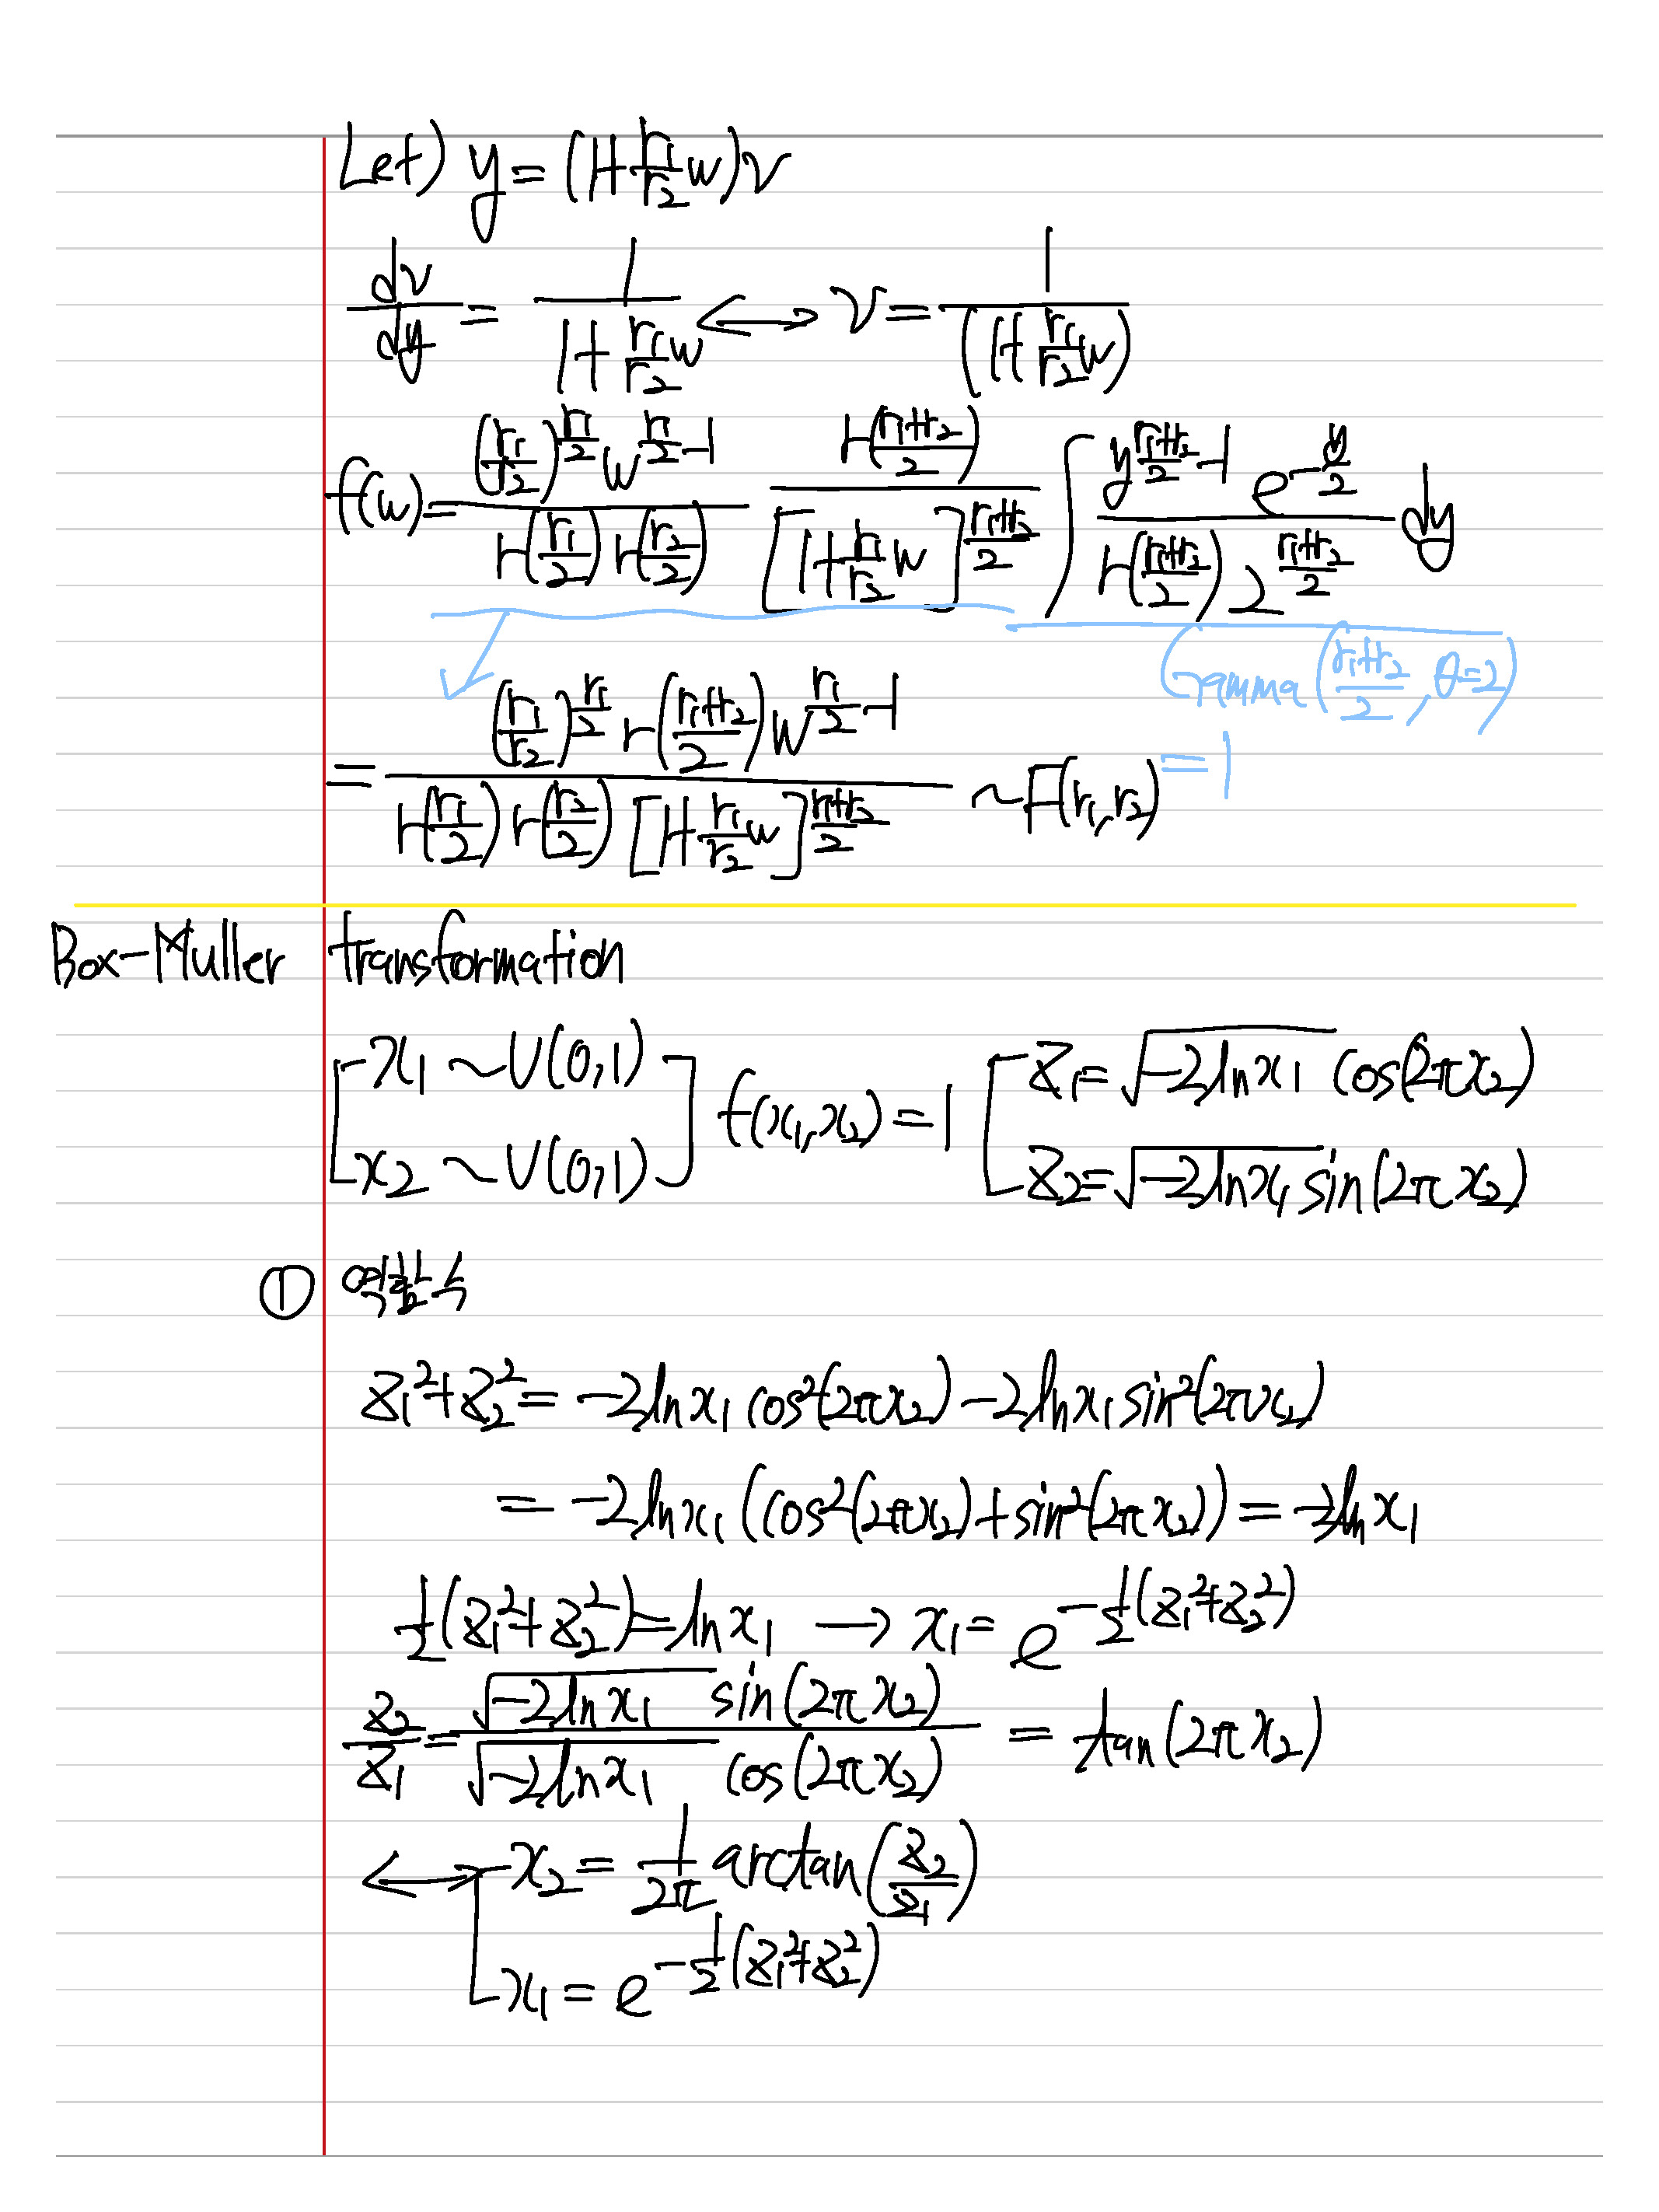 Let) y = (1+\frac{r_1}{r_2}w)v
\frac{dv}{dy} = \frac{1}{1+\frac{r_1}{r_2}w} ⟷ v = \frac{1}{(1+\frac{r_1}{r_2}w)}
f(w) = \frac{(\frac{r_1}{r_2})^{\frac{r_1}{2}} w^{\frac{r_1}{2}-1}}{Γ(\frac{r_1}{2}) Γ(\frac{r_2}{2})} \frac{Γ(\frac{r_1+r_2}{2})}{[1+\frac{r_1}{r_2}w]^{\frac{r_1+r_2}{2}}} ∫ \frac{y^{\frac{r_1+r_2}{2}-1} e^{-\frac{y}{2}}}{Γ(\frac{r_1+r_2}{2}) 2^{\frac{r_1+r_2}{2}}} dy
Gamma(\frac{r_1+r_2}{2}, θ=2)
= \frac{(\frac{r_1}{r_2})^{\frac{r_1}{2}} Γ(\frac{r_1+r_2}{2}) w^{\frac{r_1}{2}-1}}{Γ(\frac{r_1}{2}) Γ(\frac{r_2}{2}) [1+\frac{r_1}{r_2}w]^{\frac{r_1+r_2}{2}}} ~ F(r_1, r_2) = 1
Box-Muller transformation
x_1 ~ U(0,1) z_1 = \sqrt{-2lnx_1} cos(2πx_2)
f(x_1, x_2) = 1
x_2 ~ U(0,1) z_2 = \sqrt{-2lnx_1} sin(2πx_2)
① 역함수
z_1^2+z_2^2 = -2lnx_1 cos^2(2πx_2) -2lnx_1 sin^2(2πx_2)
= -2lnx_1 (cos^2(2πx_2)+sin^2(2πx_2)) = -2lnx_1
\frac{1}{2}(z_1^2+z_2^2) = lnx_1 → x_1 = e^{-\frac{1}{2}(z_1^2+z_2^2)}
\frac{z_2}{z_1} = \frac{\sqrt{-2lnx_1} sin(2πx_2)}{\sqrt{-2lnx_1} cos(2πx_2)} = tan(2πx_2)
⟷ x_2 = \frac{1}{2π} arctan(\frac{z_2}{z_1})
x_1 = e^{-\frac{1}{2}(z_1^2+z_2^2)}